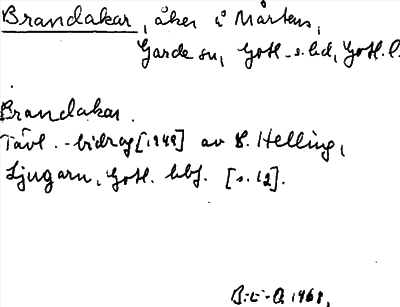 Brandakar, åker i Mårtens,
Garde sn, Gotl. s. hd, Gotl. l.
Brandakar.
Tävl.-bidrag [1949] av S. Helling,
Ljugarn, Gotl. hbf. [s. 12].
1968.